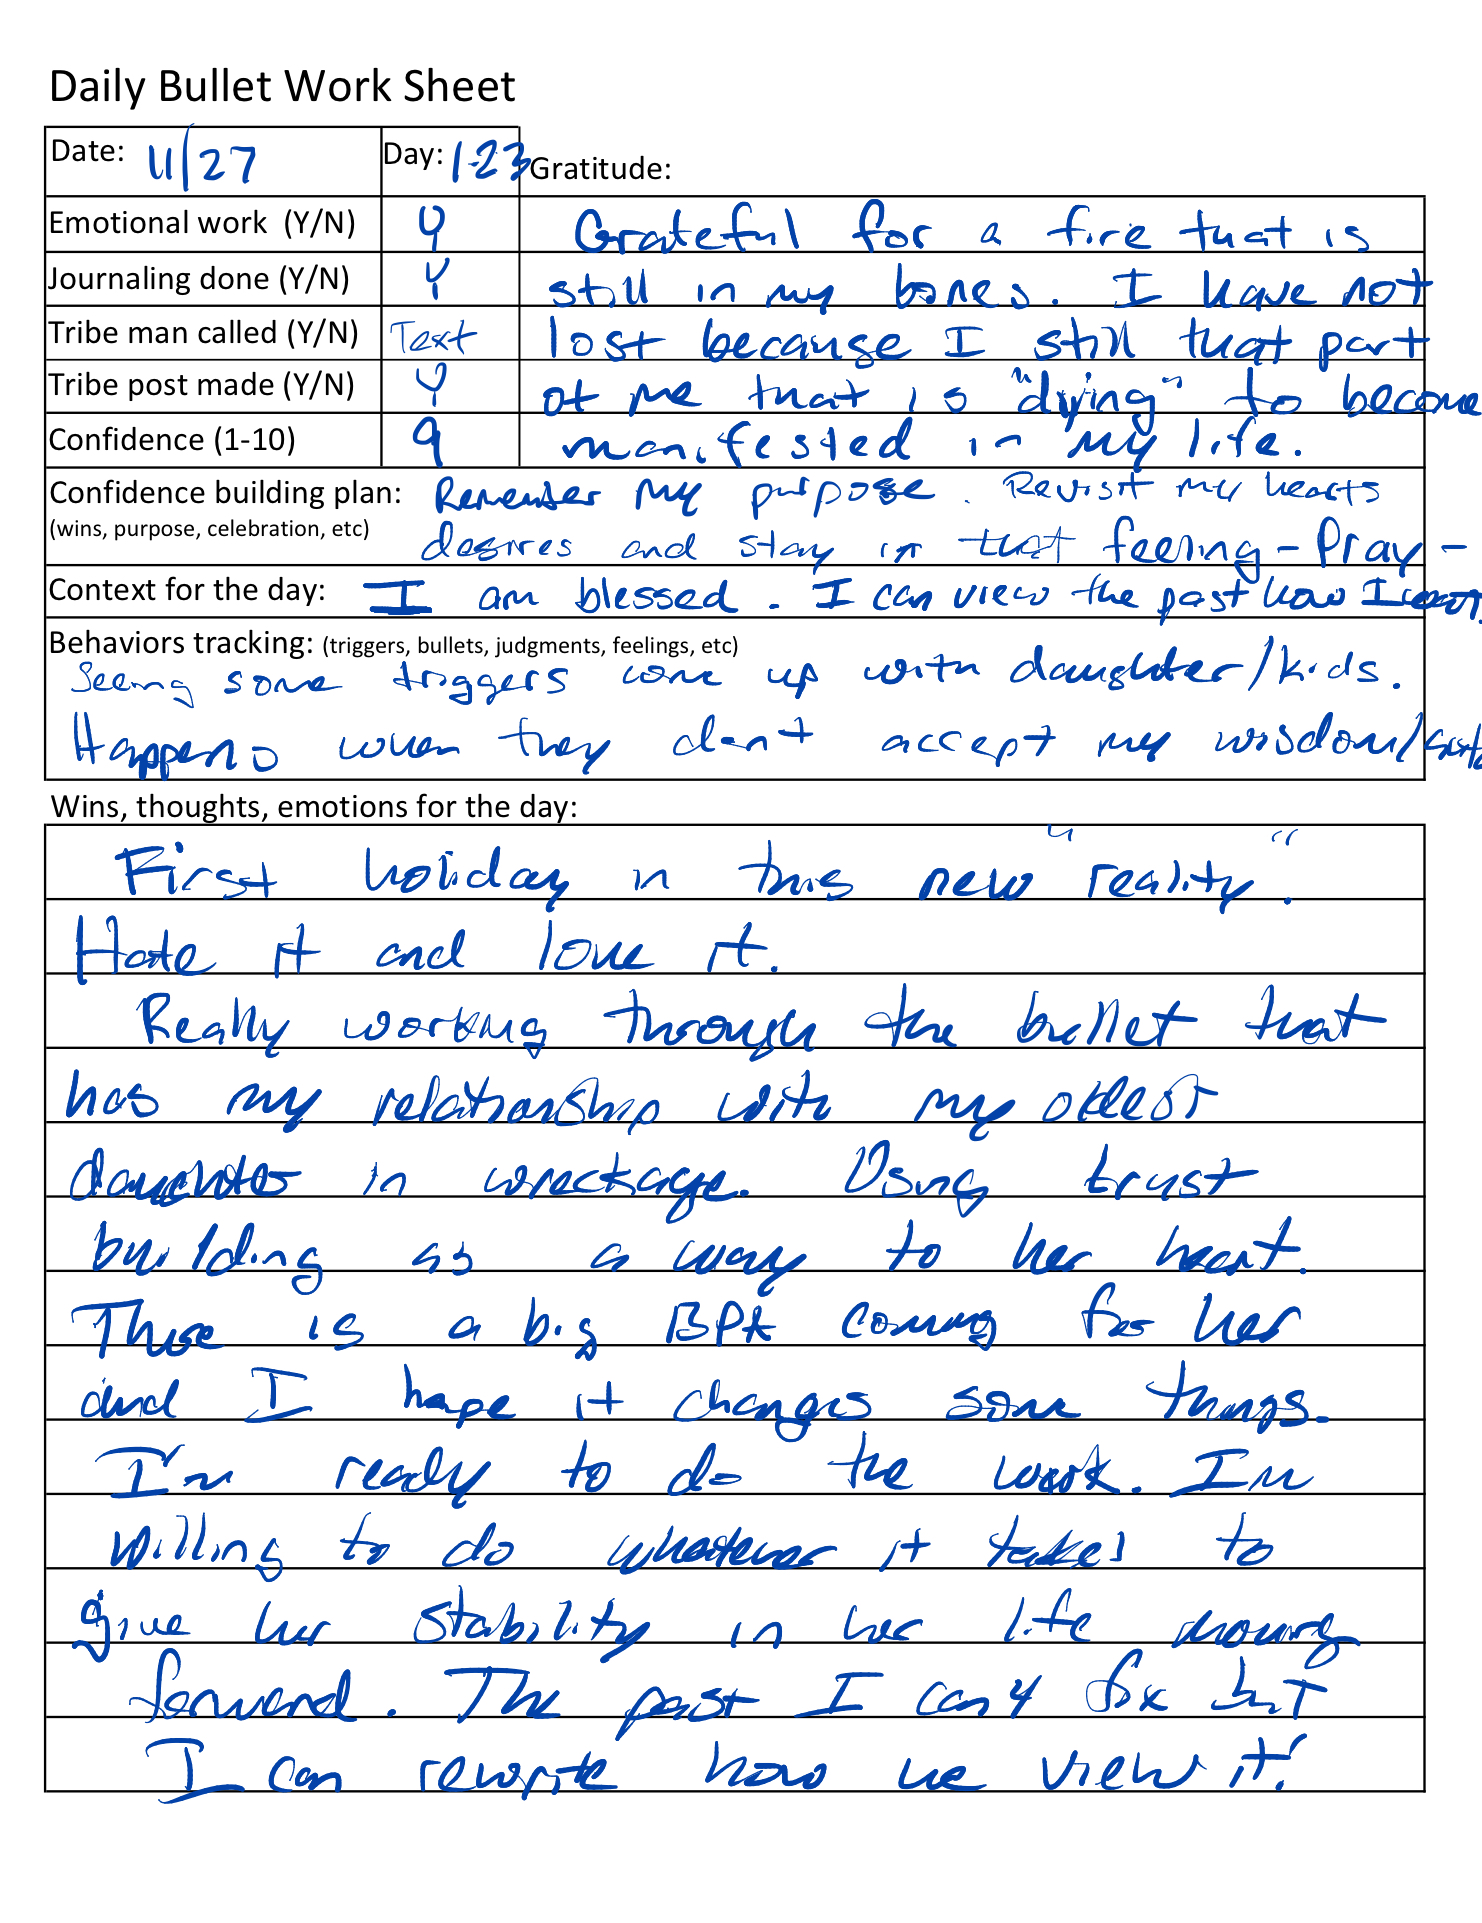 Daily Bullet Work Sheet
Date: 11/27 Day: 1-23 Gratitude:
Emotional work (Y/N) Y Grateful for a fire that is
Journaling done (Y/N) Y still in my bones. I have not
Tribe man called (Y/N) Text lost because I still that part
Tribe post made (Y/N) Y of me that is "dying" to become
Confidence (1-10) 9 manifested in my life.
Confidence building plan: Remember my purpose. Revisit my hearts
(wins, purpose, celebration, etc) desires and stay in that feeling - Pray -
Context for the day: I am blessed. I can view the past how I
Behaviors tracking: (triggers, bullets, judgments, feelings, etc)
Seeing some triggers come up with daughter/kids.
Happens when they don't accept my wisdom/
Wins, thoughts, emotions for the day:
First holiday in this new "reality".
Hate it and love it.
Really working through the bullet that
has my relationship with my oldest
daughter in wreckage. Using trust
building as a way to her heart.
There is a big BPA coming for her
and I hope it changes some things.
I'm ready to do the work. Im
willing to do whatever it takes to
give her stability in her life moving
forward. The past I can't fix but
I can rewrite how we view it!